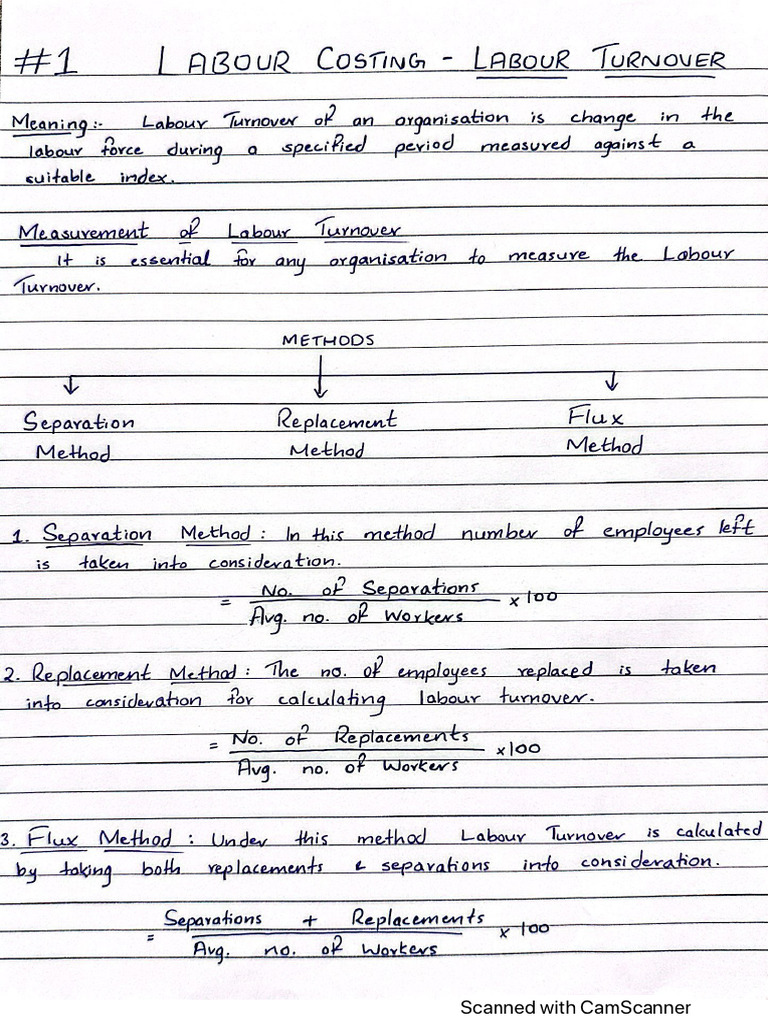 #1 LABOUR COSTING - LABOUR TURNOVER
Meaning:- Labour Turnover of an organisation is change in the
labour force during a specified period measured against a
suitable index.
Measurement of Labour Turnover
It is essential for any organisation to measure the Labour
Turnover.
METHODS
Separation Replacement Flux
Method Method Method
1. Separation Method : In this method number of employees left
is taken into consideration.
= No. of Separations / Avg. no. of Workers x 100
2. Replacement Method : The no. of employees replaced is taken
into consideration for calculating labour turnover.
= No. of Replacements / Avg. no. of Workers x 100
3. Flux Method : Under this method Labour Turnover is calculated
by taking both replacements & separations into consideration.
= Separations + Replacements / Avg. no. of Workers x 100
Scanned with CamScanner